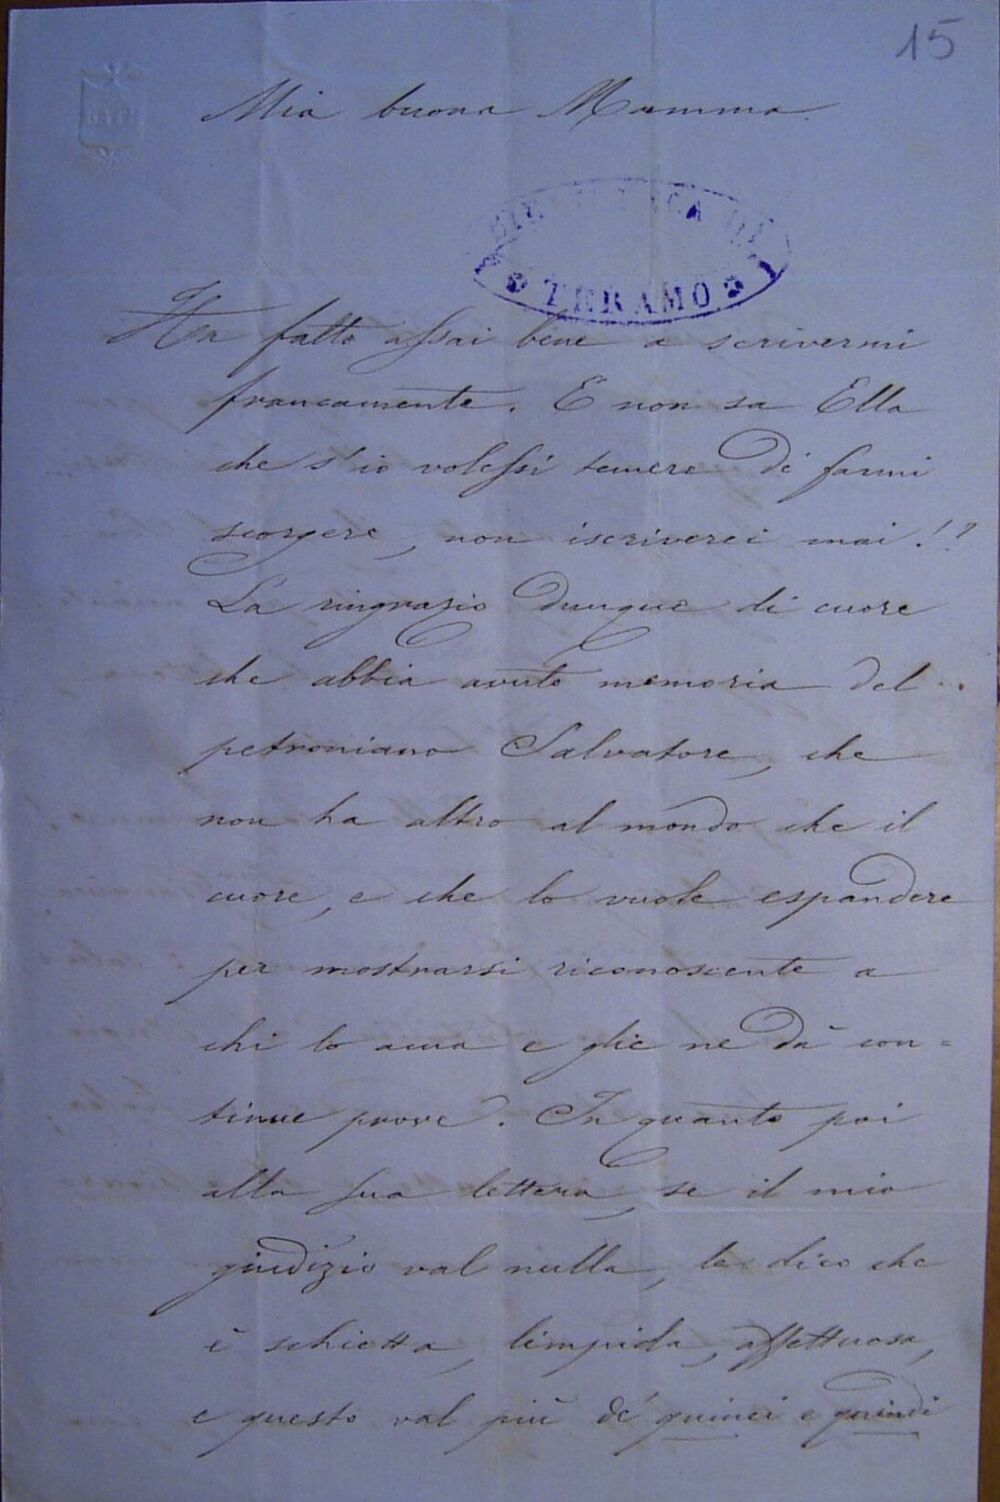 15
Mia buona Mamma.
TERAMO
Ha fatto assai bene a scrivermi
francamente. E non sa Ella
che s'io volessi temere di farmi
scorgere, non iscriverei mai!?
La ringrazio dunque di cuore
che abbia avuto memoria del
petroniano Salvatore, che
non ha altro al mondo che il
cuore, e che lo vuole espandere
per mostrarsi riconoscente a
chi lo ama e glie ne dà con=
tinue prove. In quanto poi
alla sua lettera, se il mio
giudizio val nulla, le dico che
è schietta, limpida, affettuosa,
e questo val più de' quinci e quindi